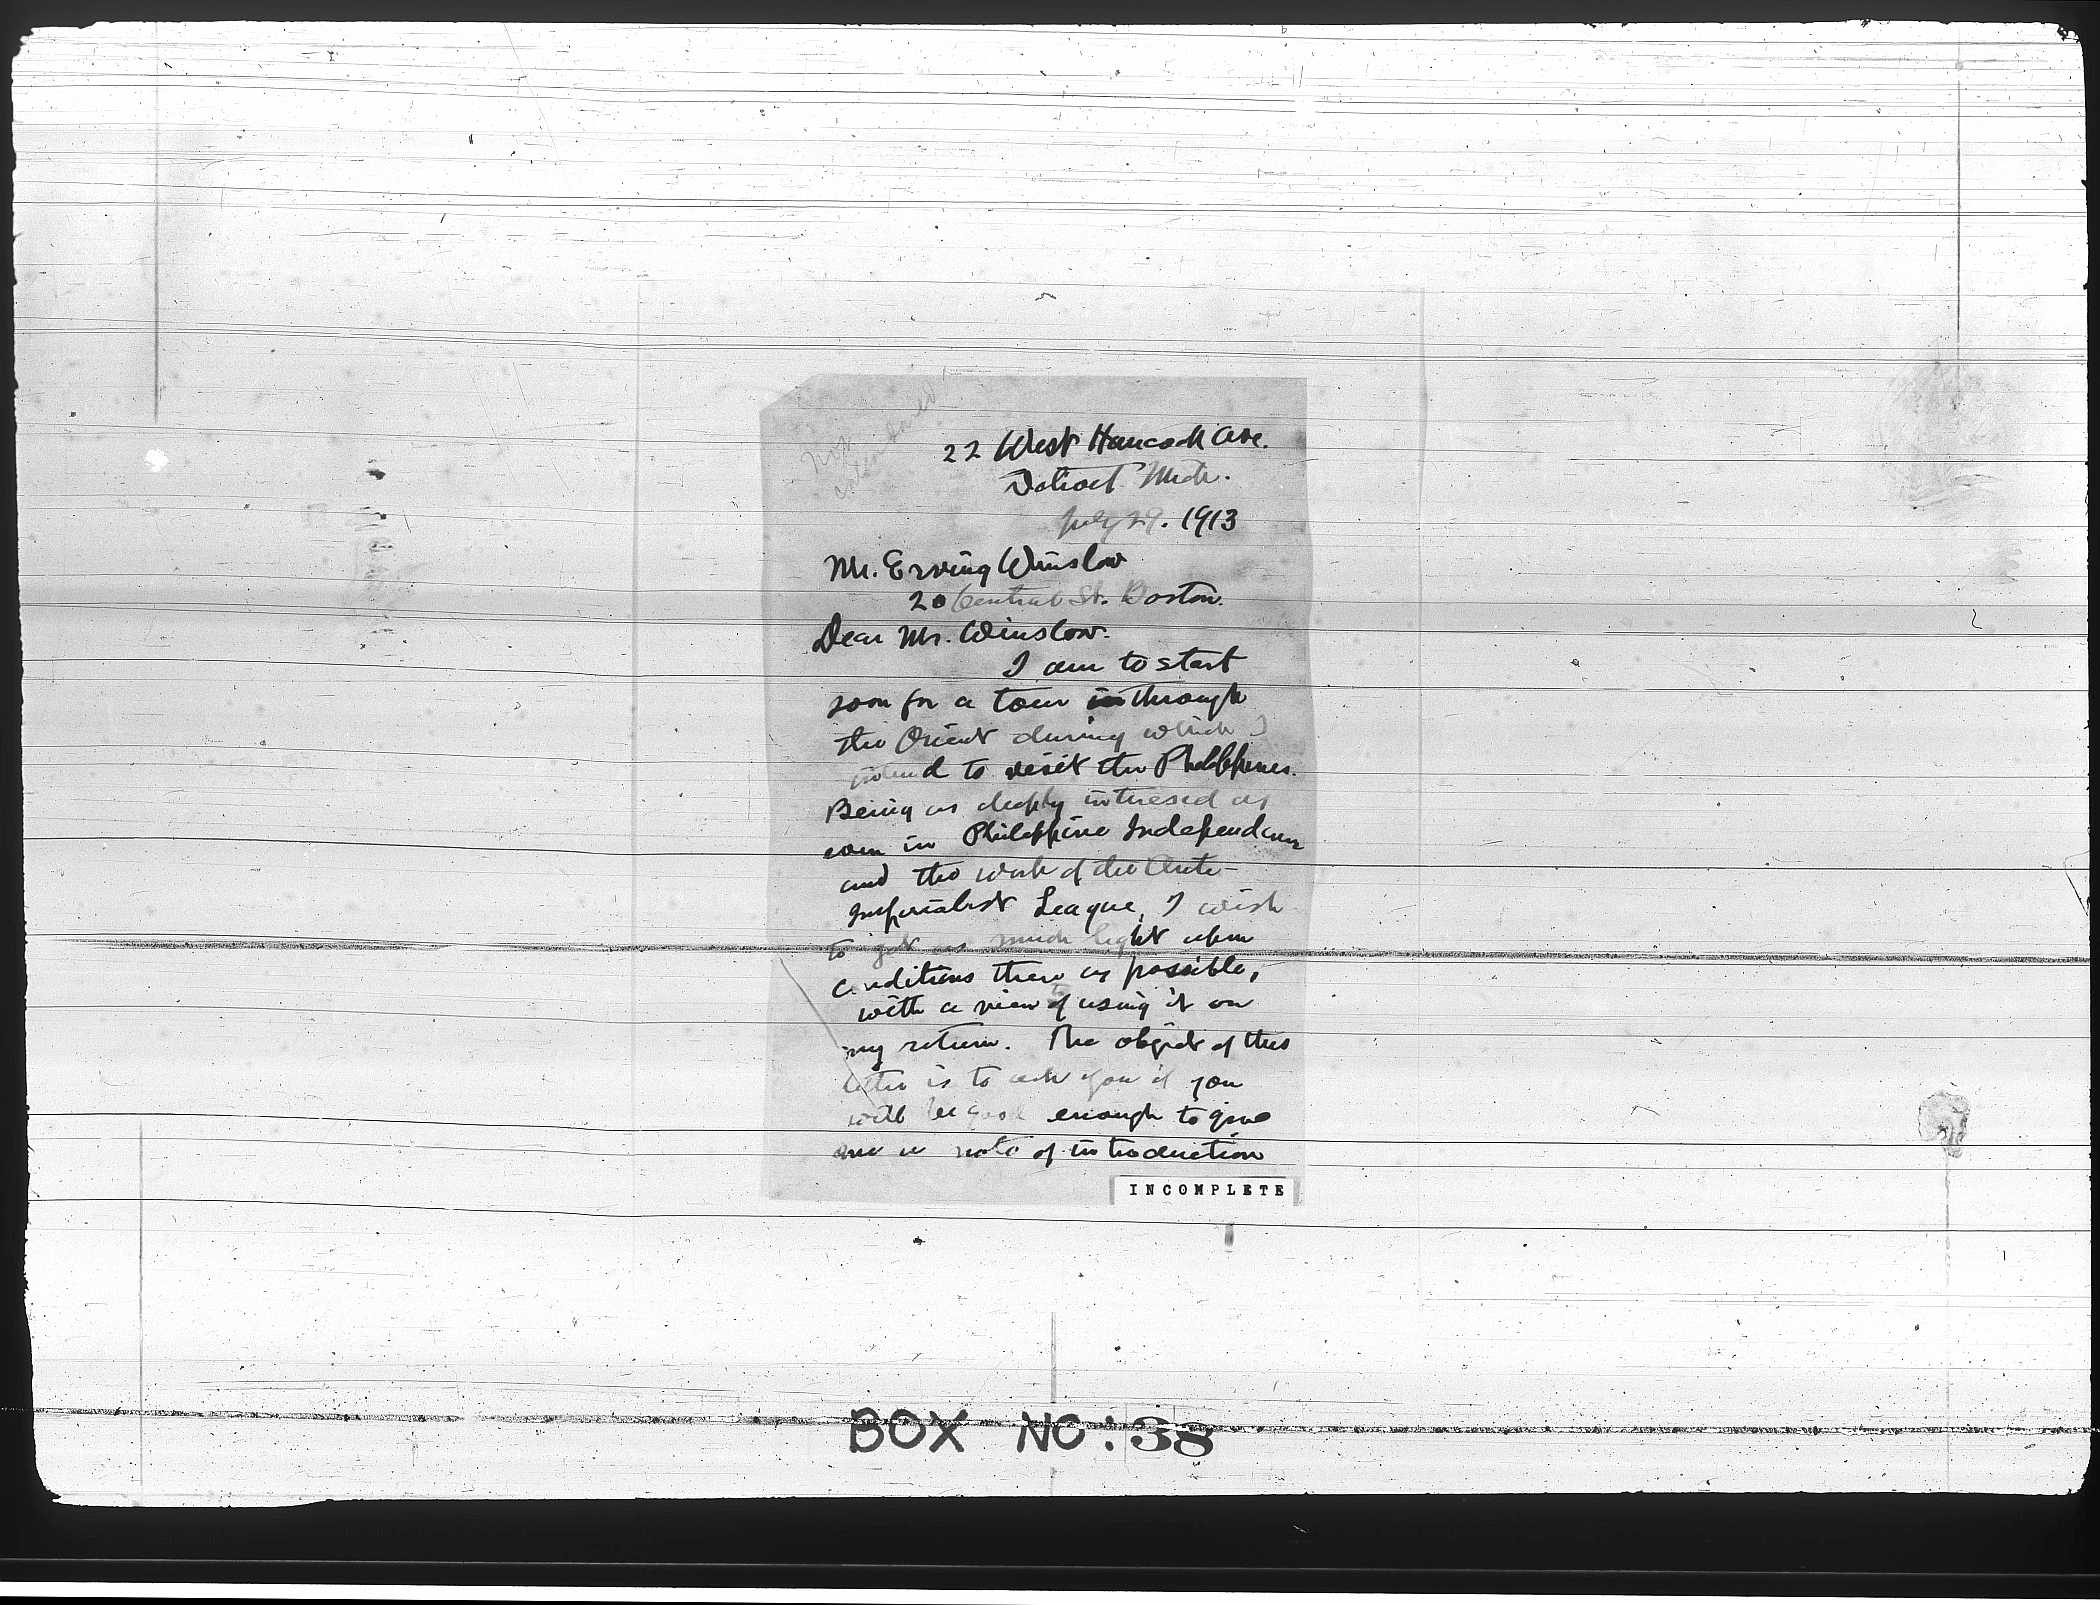 not
22 West Hancock Ave.
Detroit Mich.
July 29. 1913
Mr. Erving Winslow
20 Central St. Boston.
Dear Mr. Winslow.
I am to start
soon for a tour through
the Orient during which I
intend to visit the Philippines.
Being as deeply interesed as
ever in Philippine Independence
and the work of the Anti-
Imperialist League, I wish
to get as much light upon
conditions there as possible,
with a view of using it on
my return. The object of this
letter is to ask you if you
will be good enough to give
me a note of introduction
INCOMPLETE
BOX NO. 38